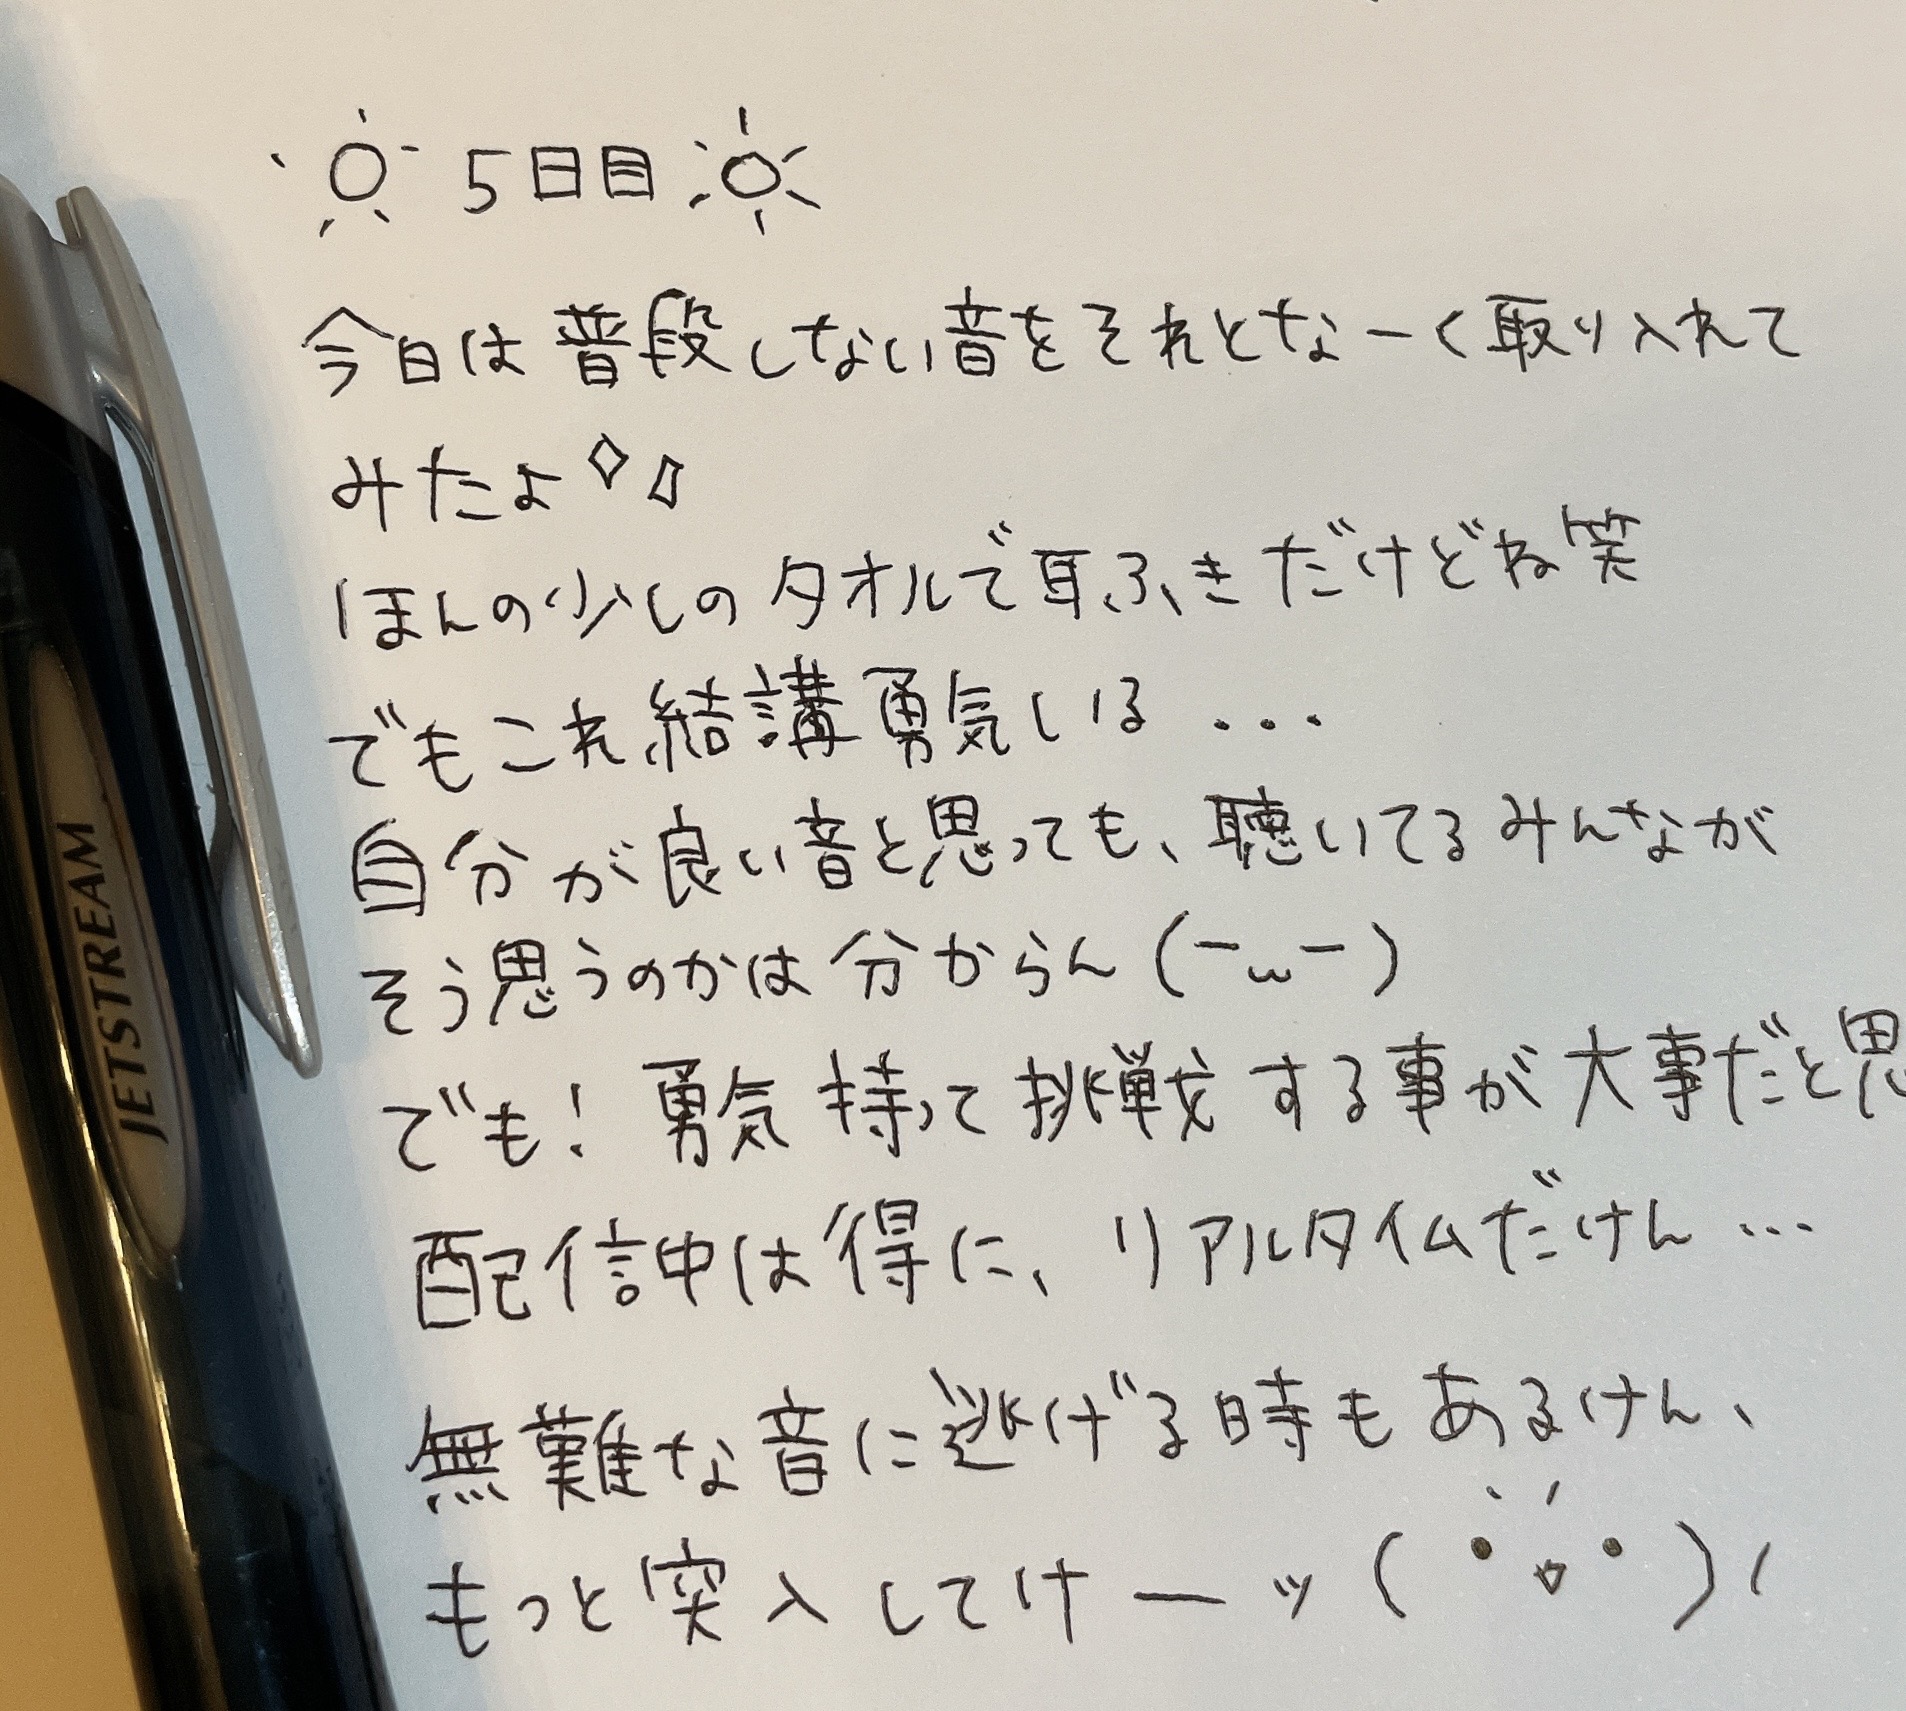 ☼ 5日目 ☼
今日は普段しない音をそれとなーく取り入れて
みたよ
ほんの少しのタオルで耳ふきだけどね笑
でもこれ結講勇気いる...
自分が良い音と思っても、聴いてるみんなが
そう思うのかは分からん(ーωー)
でも！勇気持って挑戦する事が大事だと思
配信中は得に、リアルタイムだけん...
無難な音に逃げる時もあるけん、
もっと突入してけーッ( • ▿ • )/
JETSTREAM